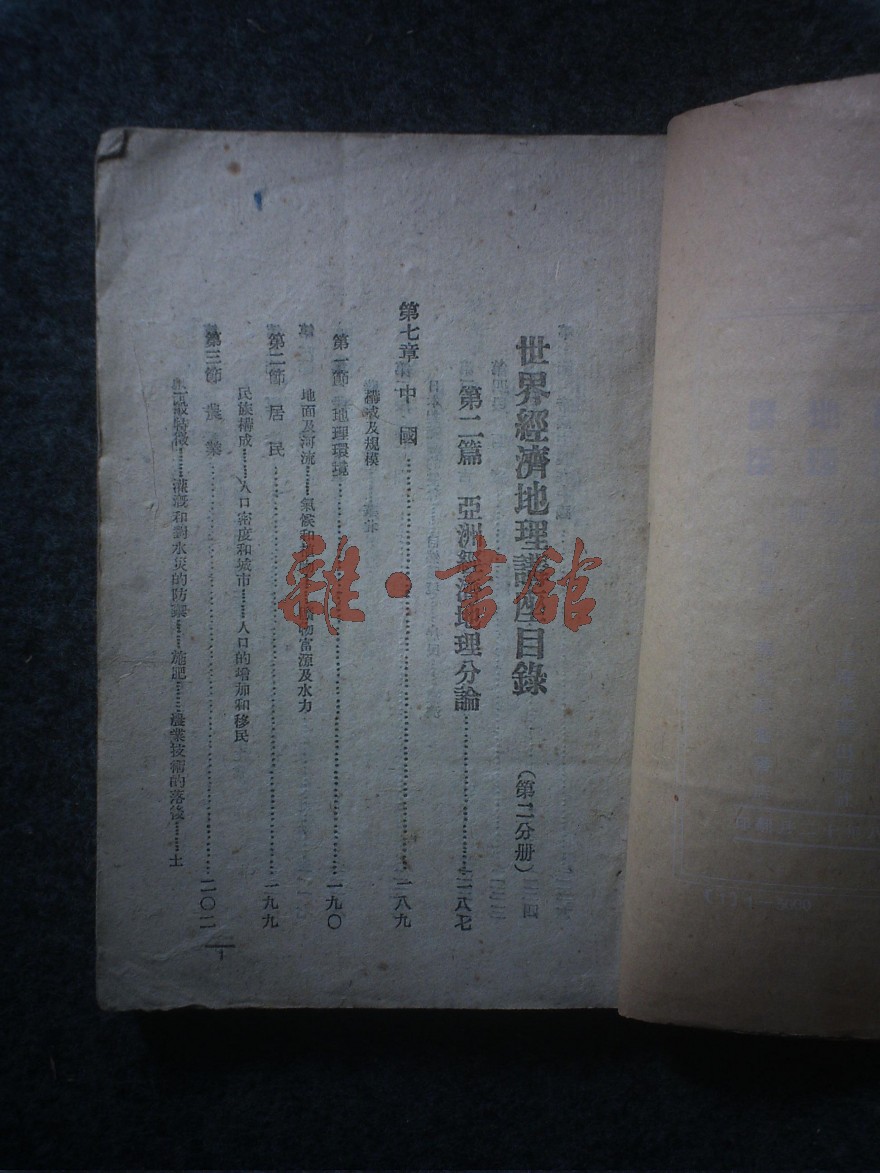 世界經濟地理講座目錄 (第二分册)
第二篇 亞洲經濟地理分論……一八七
第七章 中國……一八九
構成及規模
第一節 地理環境……一九〇
地面及河流……氣候和 物富源及水力
第二節 居民……一九九
民族構成……人口密度和城市……人口的增加和移民
第三節 農業……二〇二
一般特徵……灌漑和對水災的防禦……施肥……農業技術的落後……土
1
雜·書館